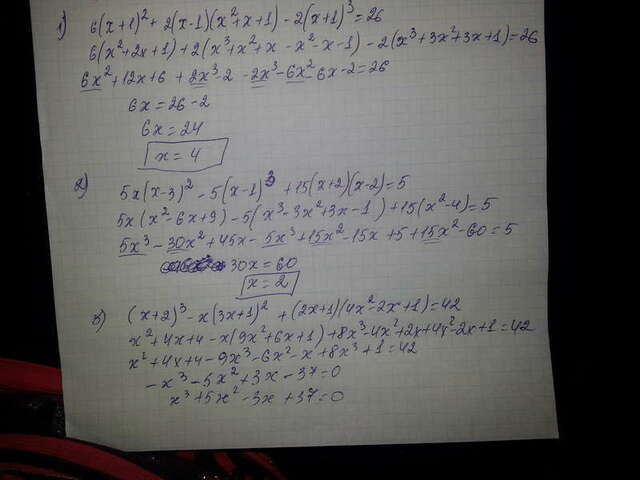 1) 6(x+1)² + 2(x-1)(x²+x+1) - 2(x+1)³ = 26
6(x²+2x+1) + 2(x³+x²+x-x²-x-1) - 2(x³+3x²+3x+1) = 26
6x²+12x+6 + 2x³-2 - 2x³-6x²-6x-2 = 26
6x = 26-2
6x = 24
x = 4
2) 5x(x-3)² - 5(x-1)³ + 15(x+2)(x-2) = 5
5x(x²-6x+9) - 5(x³-3x²+3x-1) + 15(x²-4) = 5
5x³-30x²+45x-5x³+15x²-15x+5+15x²-60 = 5
30x = 60
x = 2
3) (x+2)³ - x(3x+1)² + (2x+1)(4x²-2x+1) = 42
x²+4x+4-x(9x²+6x+1)+8x³-4x²+2x+4x²-2x+1 = 42
x²+4x+4-9x³-6x²-x+8x³+1 = 42
-x³-5x²+3x-37 = 0
x³+5x²-3x+37 = 0